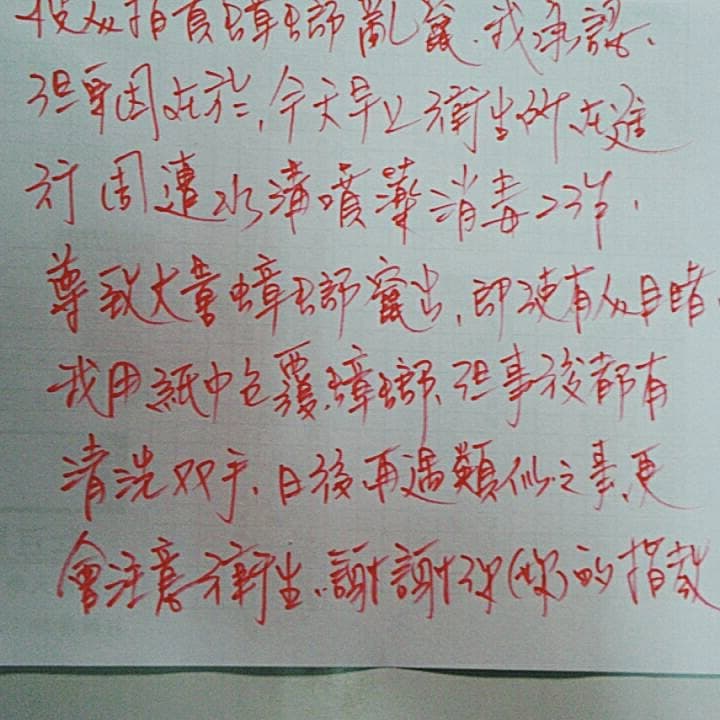 蟑螂亂竄,我承認、
但原因在於,今天早上衛生所在進
行周遭水溝噴藥消毒工作,
導致大量蟑螂竄出,即使有人目睹
我用紙巾包覆蟑螂、但事後都有
清洗双手、日後再遇類似之事,更
會注意衛生,謝謝你(妳)的指教